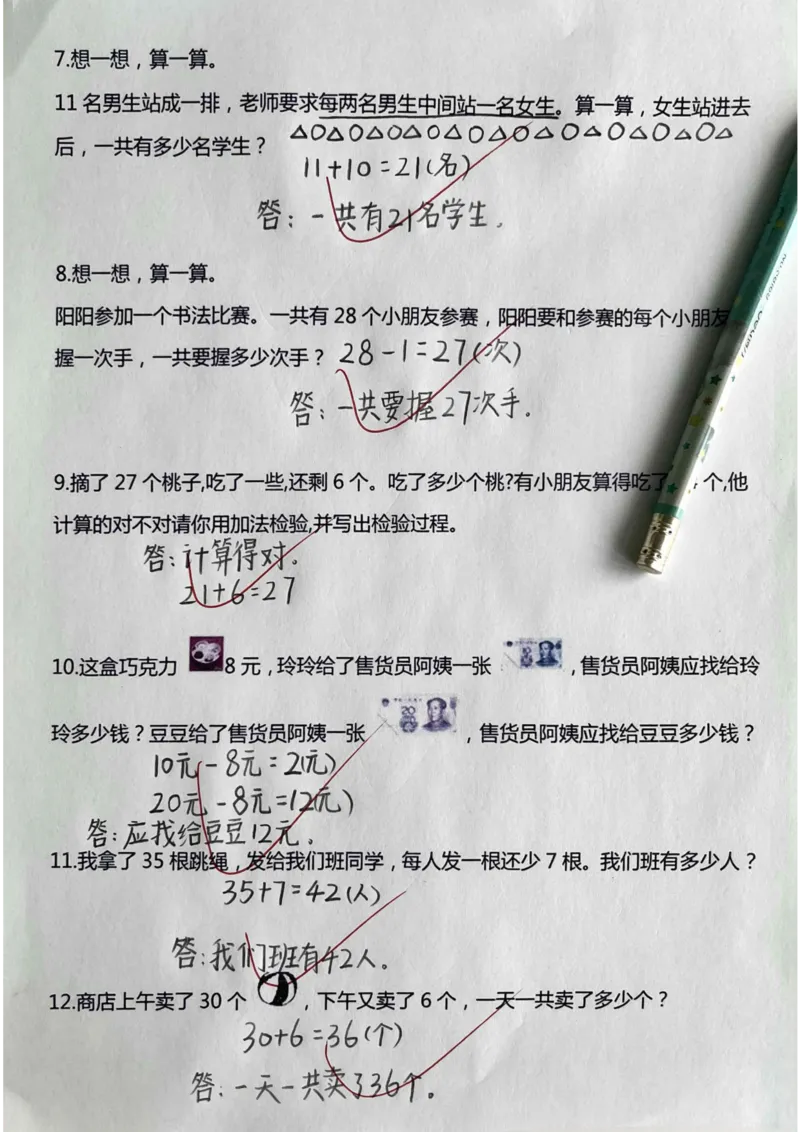 7.想一想，算一算。
11名男生站成一排，老师要求每两名男生中间站一名女生。算一算，女生站进去
后，一共有多少名学生？
11+10=21(名)
答：一共有21名学生。
8.想一想，算一算。
阳阳参加一个书法比赛。一共有28个小朋友参赛，阳阳要和参赛的每个小朋友
握一次手，一共要握多少次手？ 28-1=27(次)
答：一共要握27次手.
9.摘了27个桃子,吃了一些,还剩6个。吃了多少个桃?有小朋友算得吃了 个,他
计算的对不对请你用加法检验,并写出检验过程。
答：计算得对。
21+6=27
10.这盒巧克力 8元，玲玲给了售货员阿姨一张 ，售货员阿姨应找给玲
20
玲多少钱？豆豆给了售货员阿姨一张 ，售货员阿姨应找给豆豆多少钱？
10元-8元=2(元)
20元-8元=12(元)
答：应找给豆豆12元.
11.我拿了35根跳绳，发给我们班同学，每人发一根还少7根。我们班有多少人？
35+7=42(人)
答：我们班有42人。
12.商店上午卖了30个 ，下午又卖了6个，一天一共卖了多少个？
30+6=36(个)
答：一天一共卖了36个。